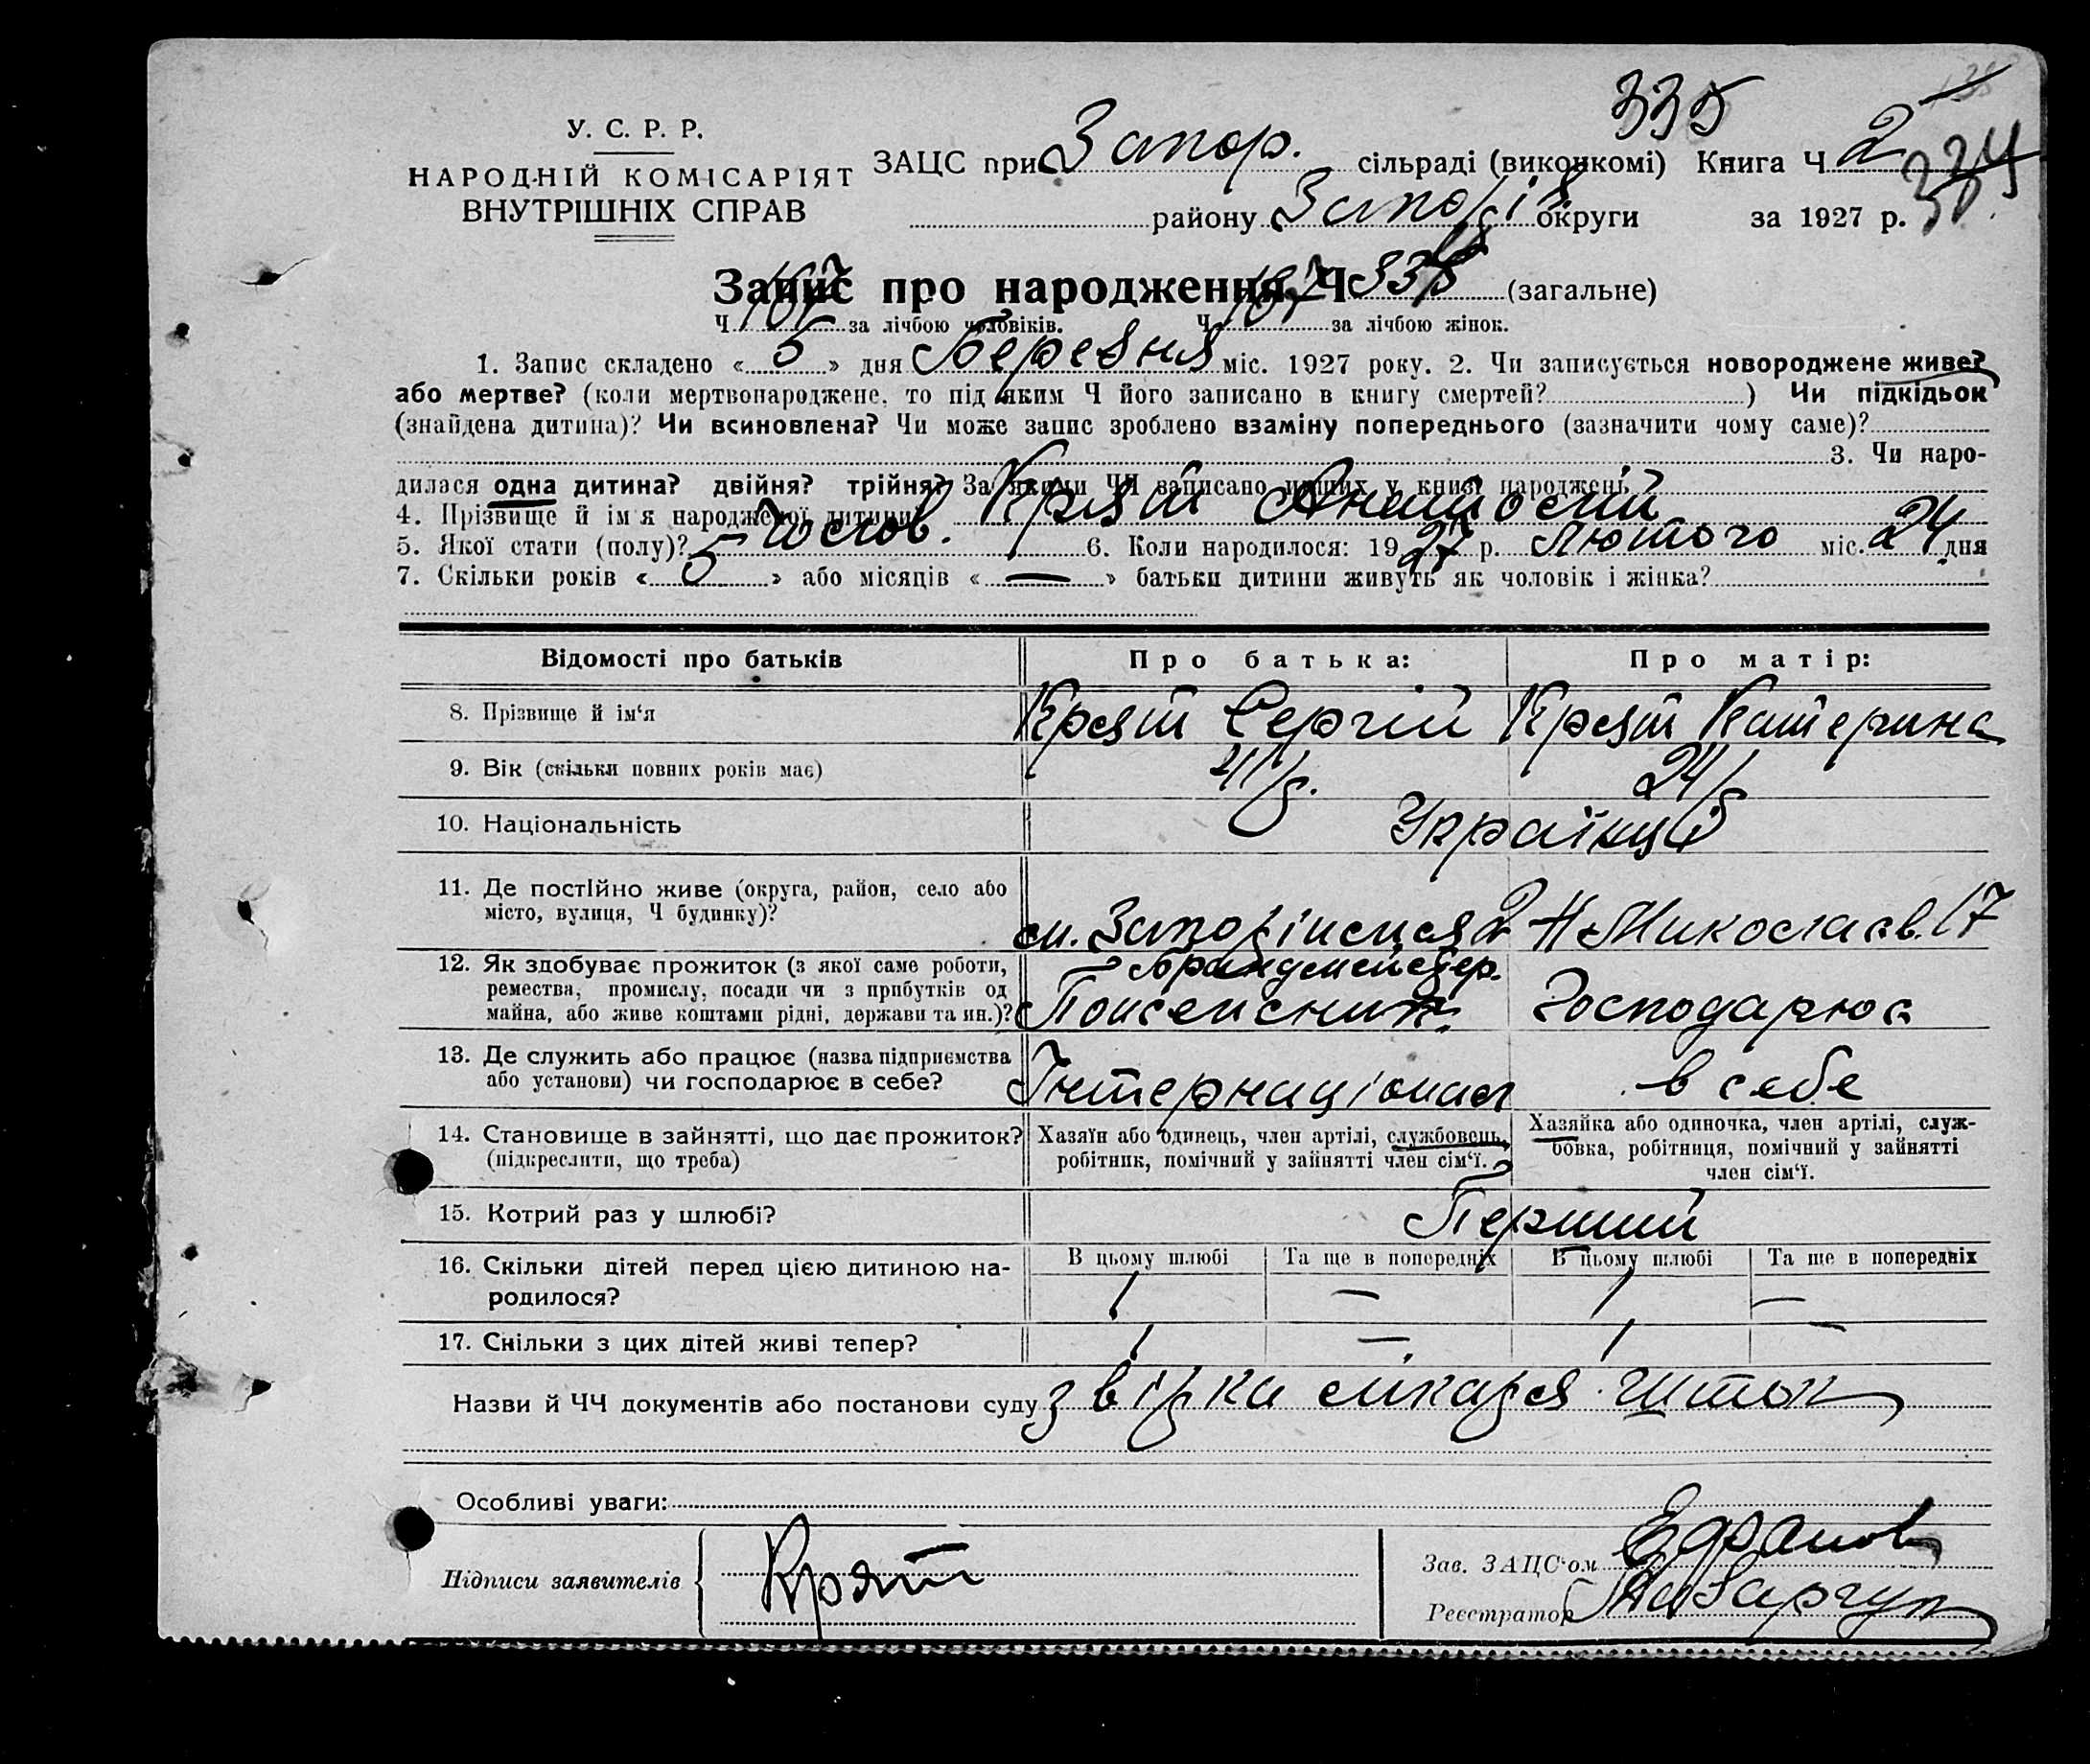 335
У. С. Р. Р.
НАРОДНІЙ КОМІСАРІЯТ
ВНУТРІШНІХ СПРАВ
ЗАЦС при Запор. сільраді (виконкомі) Книга Ч 2
району Запоріз округи за 1927 р.
Запис про народження Ч 335 (загальне)
Ч за лічбою чоловіків. Ч за лічбою жінок.
1. Запис складено « 5 » дня Березня міс. 1927 року. 2. Чи записується новороджене живе?
або мертве? (коли мертвонароджене, то під яким Ч його записано в книгу смертей? ) Чи підкідьок
(знайдена дитина)? Чи всиновлена? Чи може запис зроблено взаміну попереднього (зазначити чому саме)?
3. Чи наро-
дилася одна дитина? двійня? трійня? За якими ЧЧ записано инших у книзі народжень
4. Прізвище й ім'я народженої дитини Крят Анатолій
5. Якої стати (полу)? Чолов. 6. Коли народилося: 1927 р. Лютого міс. 24 дня
7. Скільки років « 5 » або місяців « — » батьки дитини живуть як чоловік і жінка?
Відомості про батьків Про батька: Про матір:
8. Прізвище й ім‘я Крят Сергій Крят Катерина
9. Вік (скільки повних років має) 24
10. Національність Українці
11. Де постійно живе (округа, район, село або
місто, вулиця, Ч будинку)? 17
12. Як здобуває прожиток (з якої саме роботи, Брандмейстер.
ремества, промислу, посади чи з прибутків од
майна, або живе коштами рідні, держави та ин.)? Господарює
13. Де служить або працює (назва підприємства
або установи) чи господарює в себе? Інтернаціонал в себе
14. Становище в зайнятті, що дає прожиток?
(підкреслити, що треба)
Хазяїн або одинець, член артілі, службовець,
робітник, помічний у зайнятті член сім‘ї.
Хазяйка або одиночка, член артілі, служ-
бовка, робітниця, помічний у зайнятті
член сім‘ї.
15. Котрий раз у шлюбі? Перший
16. Скільки дітей перед цією дитиною на-
родилося?
В цьому шлюбі Та ще в попередніх В цьому шлюбі Та ще в попередніх
1 — 1 —
17. Скільки з цих дітей живі тепер? 1 — 1 —
Назви й ЧЧ документів або постанови суду звізка лікаря
Особливі уваги:
Підписи заявителів Крят
Зав. ЗАЦС‘ом
Реєстратор